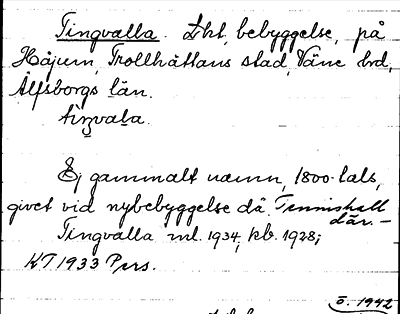 Tingvalla. Lht, bebyggelse, på
Håjum, Trollhättans stad, Väne hd,
Älfsborgs län.
tiŋvala.
Ej gammalt namn, 1800-tals,
givet vid nybebyggelse då. Tennishall
där.-
Tingvalla ml. 1934, kb. 1928;
KT 1933 Prs.
ö. 1942